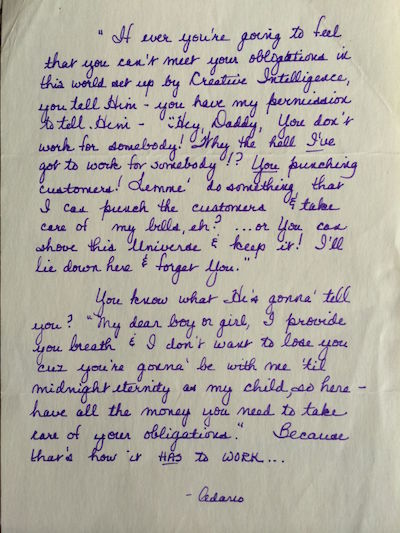 " If ever you're going to feel
that you can't meet your obligations in
this world set up by Creative Intelligence,
you tell Him - you have my permission
to tell Him - "Hey, Daddy, You don't
work for somebody! Why the hell I've
got to work for somebody!? You punching
customers! Lemme' do something that
I can punch the customers & take
care of my bills, eh? ... or You can
shove this Universe & keep it! I'll
lie down here & forget You."
You know what He's gonna' tell
you? "My dear boy or girl, I provide
you breath & I don't want to lose you
cuz you're gonna' be with me 'til
midnight eternity as my child, so here -
have all the money you need to take
care of your obligations." Because
that's how it HAS to WORK...
- Adano